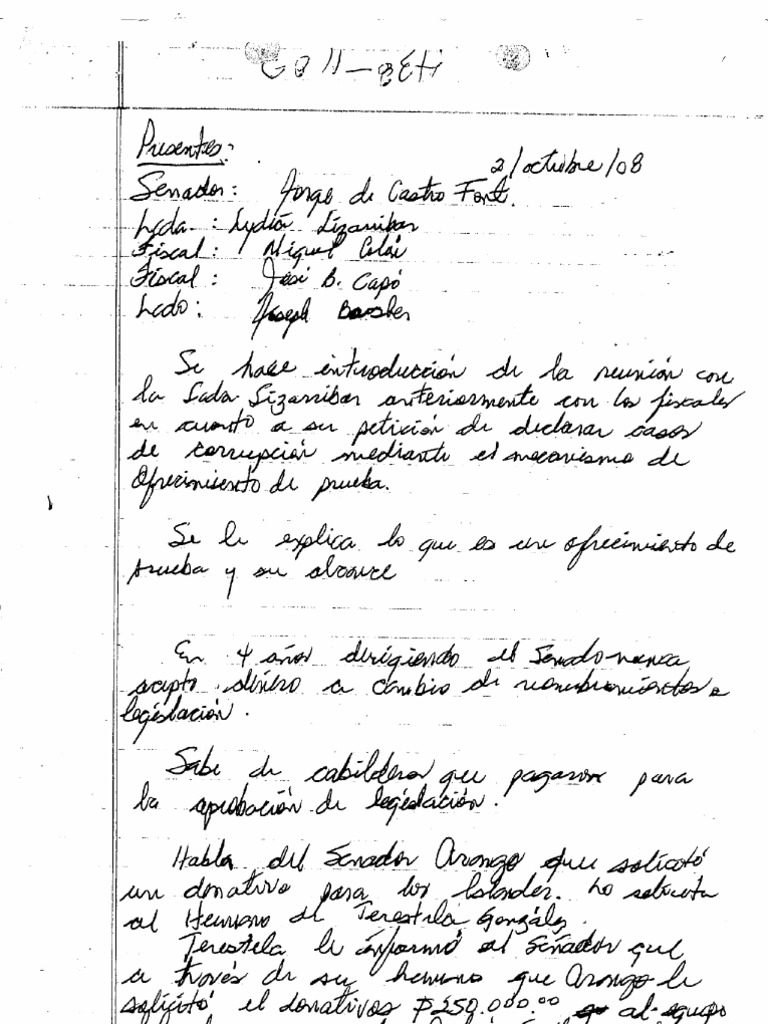 Presentes:
2/octubre/08
Senador: Jorge de Castro Font.
Lcda. : Lydia Lizarribar
Fiscal: Miguel Colón
Fiscal: José B. Capó
Lcdo: Joseph
Se hace introducción de la reunión con
la Lcda Lizarribar anteriormente con los fiscales
en cuanto a su petición de declarar casos
de corrupción mediante el mecanismo de
Ofrecimiento de prueba.
Se le explica lo que es un ofrecimiento de
prueba y su alcance
En 4 años dirigiendo el Senado nunca
acepto dinero a cambio de nombramientos o
legislación.
Sabe de cabilderos que pagaron para
la aprobación de legislación.
Habla del Senador Arango que solicitó
un donativo para los Islander. Lo solicita
al Hermano de Terestela González
Terestela le informó al Señador que
a través de su hermano que Arango le
solicitó el donativos $250.000.00 al equipo